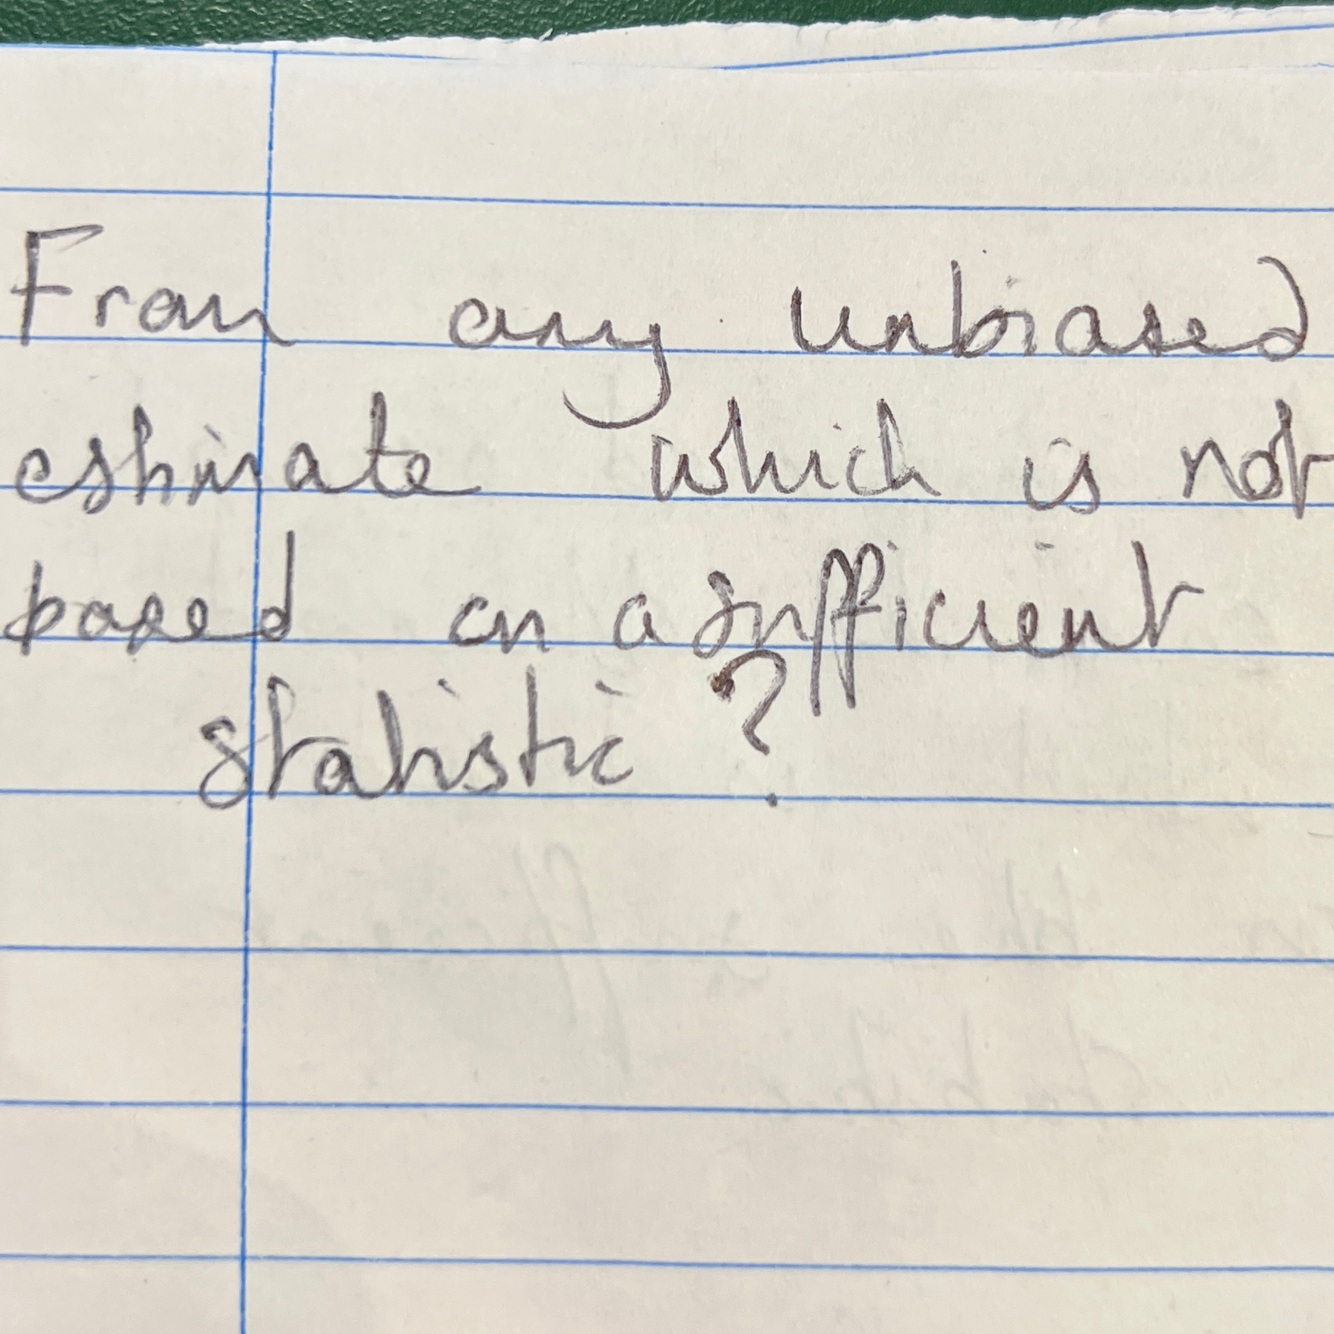 From any unbiased
estimate which is not
based on a sufficient
statistic ?